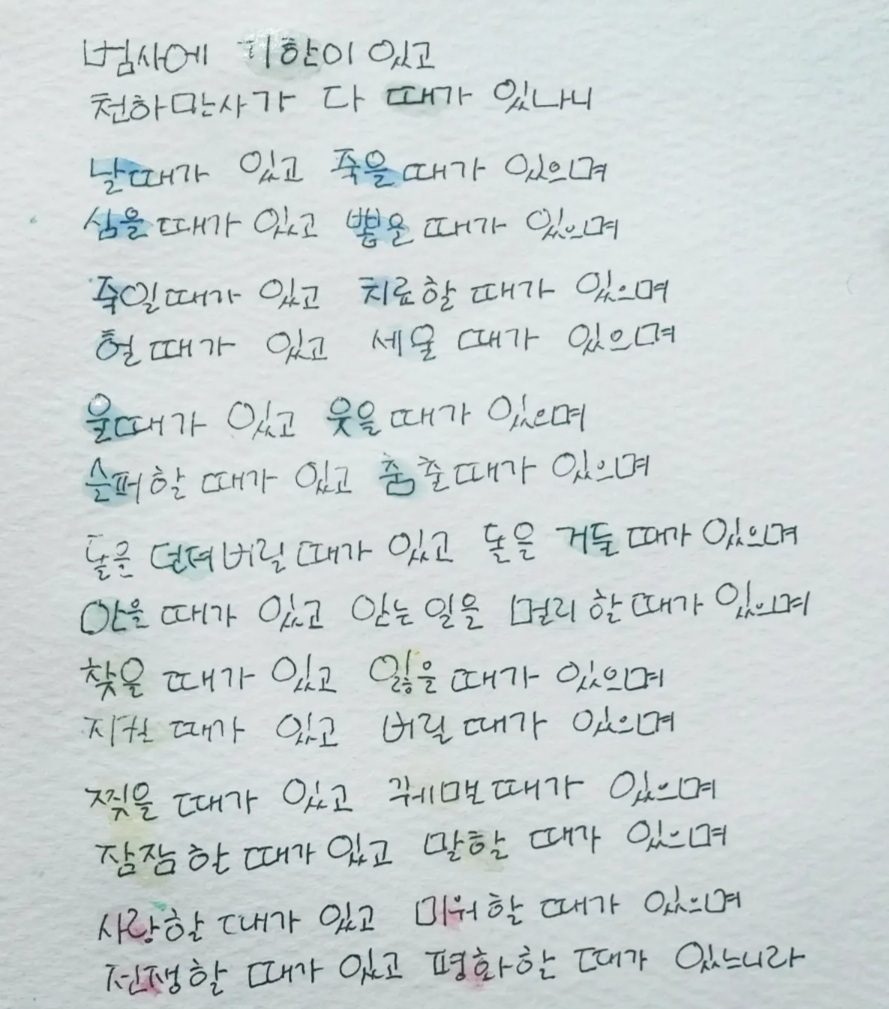 범사에 기한이 있고
천하만사가 다 때가 있나니
날때가 있고 죽을때가 있으며
심을때가 있고 뽑을 때가 있으며
죽일때가 있고 치료할 때가 있으며
헐때가 있고 세울 때가 있으며
울때가 있고 웃을때가 있으며
슬퍼할 때가 있고 춤출때가 있으며
돌을 던져버릴때가 있고 돌을 거둘때가 있으며
안을 때가 있고 안는 일을 멀리 할때가 있으며
찾을 때가 있고 잃을 때가 있으며
지킬 때가 있고 버릴때가 있으며
찢을 때가 있고 꿰맬때가 있으며
잠잠할 때가 있고 말할 때가 있으며
사랑할 때가 있고 미워할 때가 있으며
전쟁할 때가 있고 평화할 때가 있느니라